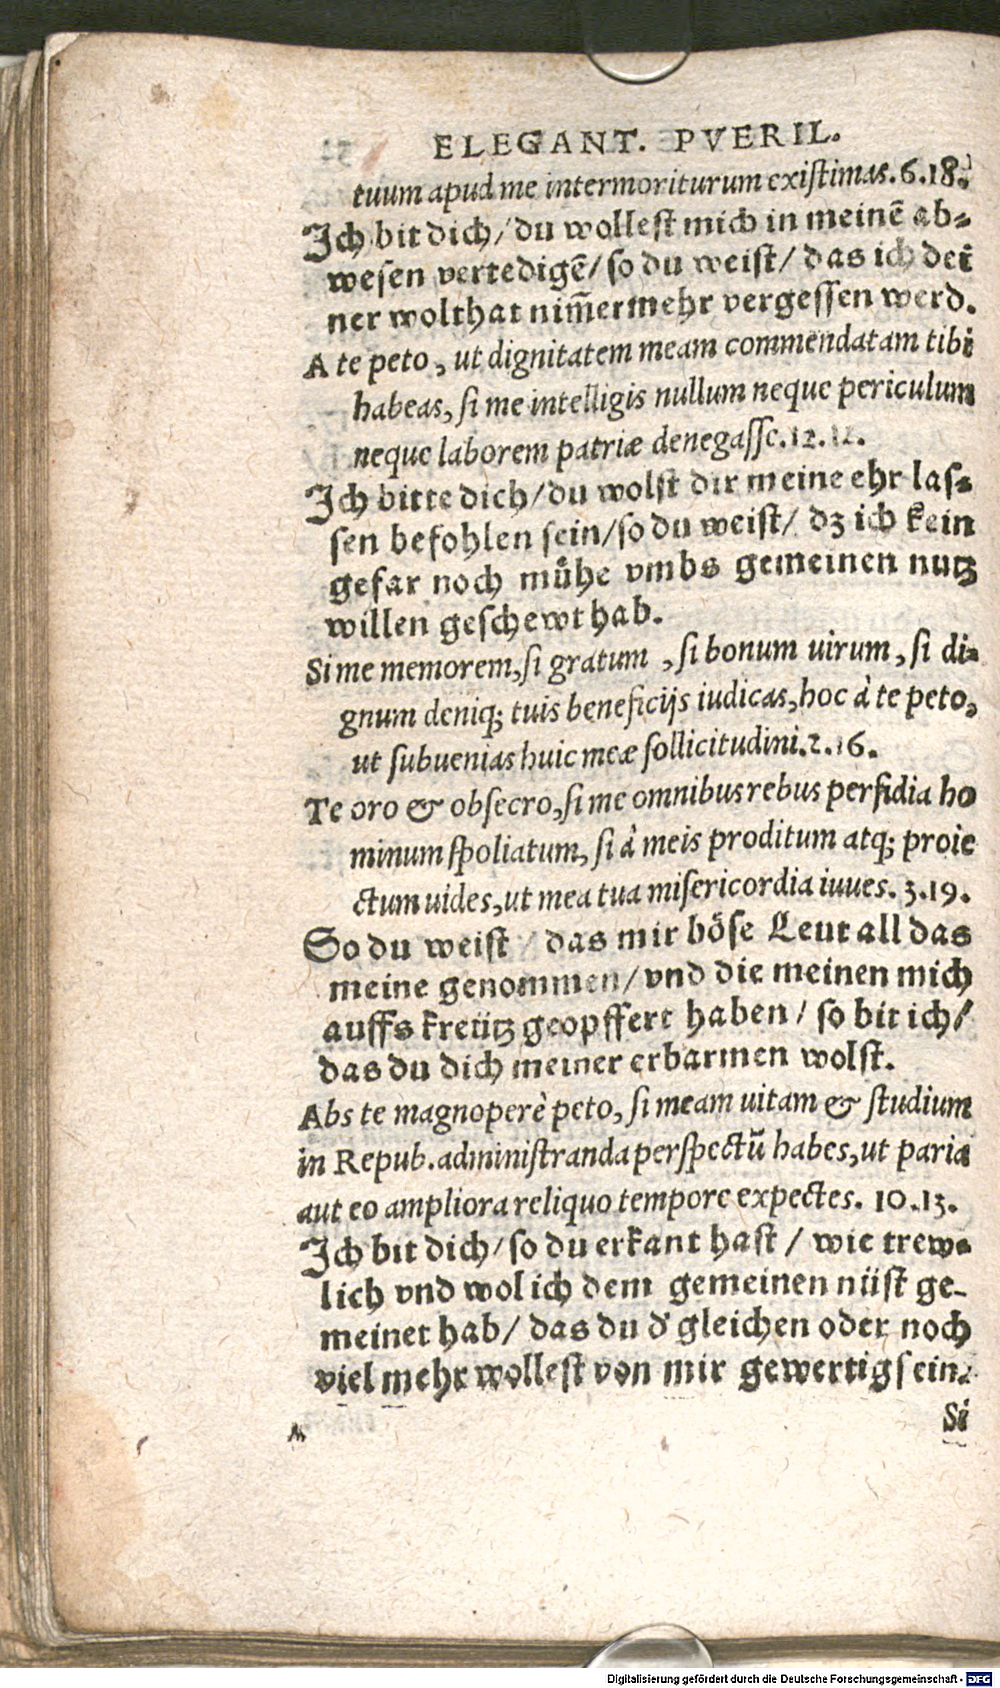 ELEGANT. PVERIL.
tuum apud me intermoriturum existimas. 6.18.
Ich bit dich/ du wollest mich in meinē ab-
wesen vertedigē/ so du weist/ das ich dei
ner wolthat nim̄ermehr vergessen werd.
A te peto, ut dignitatem meam commendatam tibi
habeas, si me intelligis nullum neque periculum
neque laborem patriæ denegasse. 12. 12.
Ich bitte dich/ du wolst dir meine ehr las-
sen befohlen sein/ so du weist/ dz ich kein
gefar noch můhe vmbs gemeinen nutz
willen geschewt hab.
Si me memorem, si gratum, si bonum uirum, si di-
gnum deniq; tuis beneficijs iudicas, hoc à te peto,
ut subuenias huic meæ sollicitudini. 2. 16.
Te oro & obsecro, si me omnibus rebus perfidia ho
minum spoliatum, si à meis proditum atq; proie
ctum uides, ut mea tua misericordia iuues. 3.19.
So du weist / das mir böse Leut all das
meine genommen/ vnd die meinen mich
auffs kreütz geopffert haben/ so bit ich/
das du dich meiner erbarmen wolst.
Abs te magnoperè peto, si meam uitam & studium
in Repub. administranda perspectū habes, ut paria
aut eo ampliora reliquo tempore expectes. 10.13.
Ich bit dich/ so du erkant hast / wie trew-
lich vnd wol ich dem gemeinen nüst ge-
meinet hab/ das du d' gleichen oder noch
viel mehr wollest von mir gewertig sein.
Si
Digitalisierung gefördert durch die Deutsche Forschungsgemeinschaft - DFG